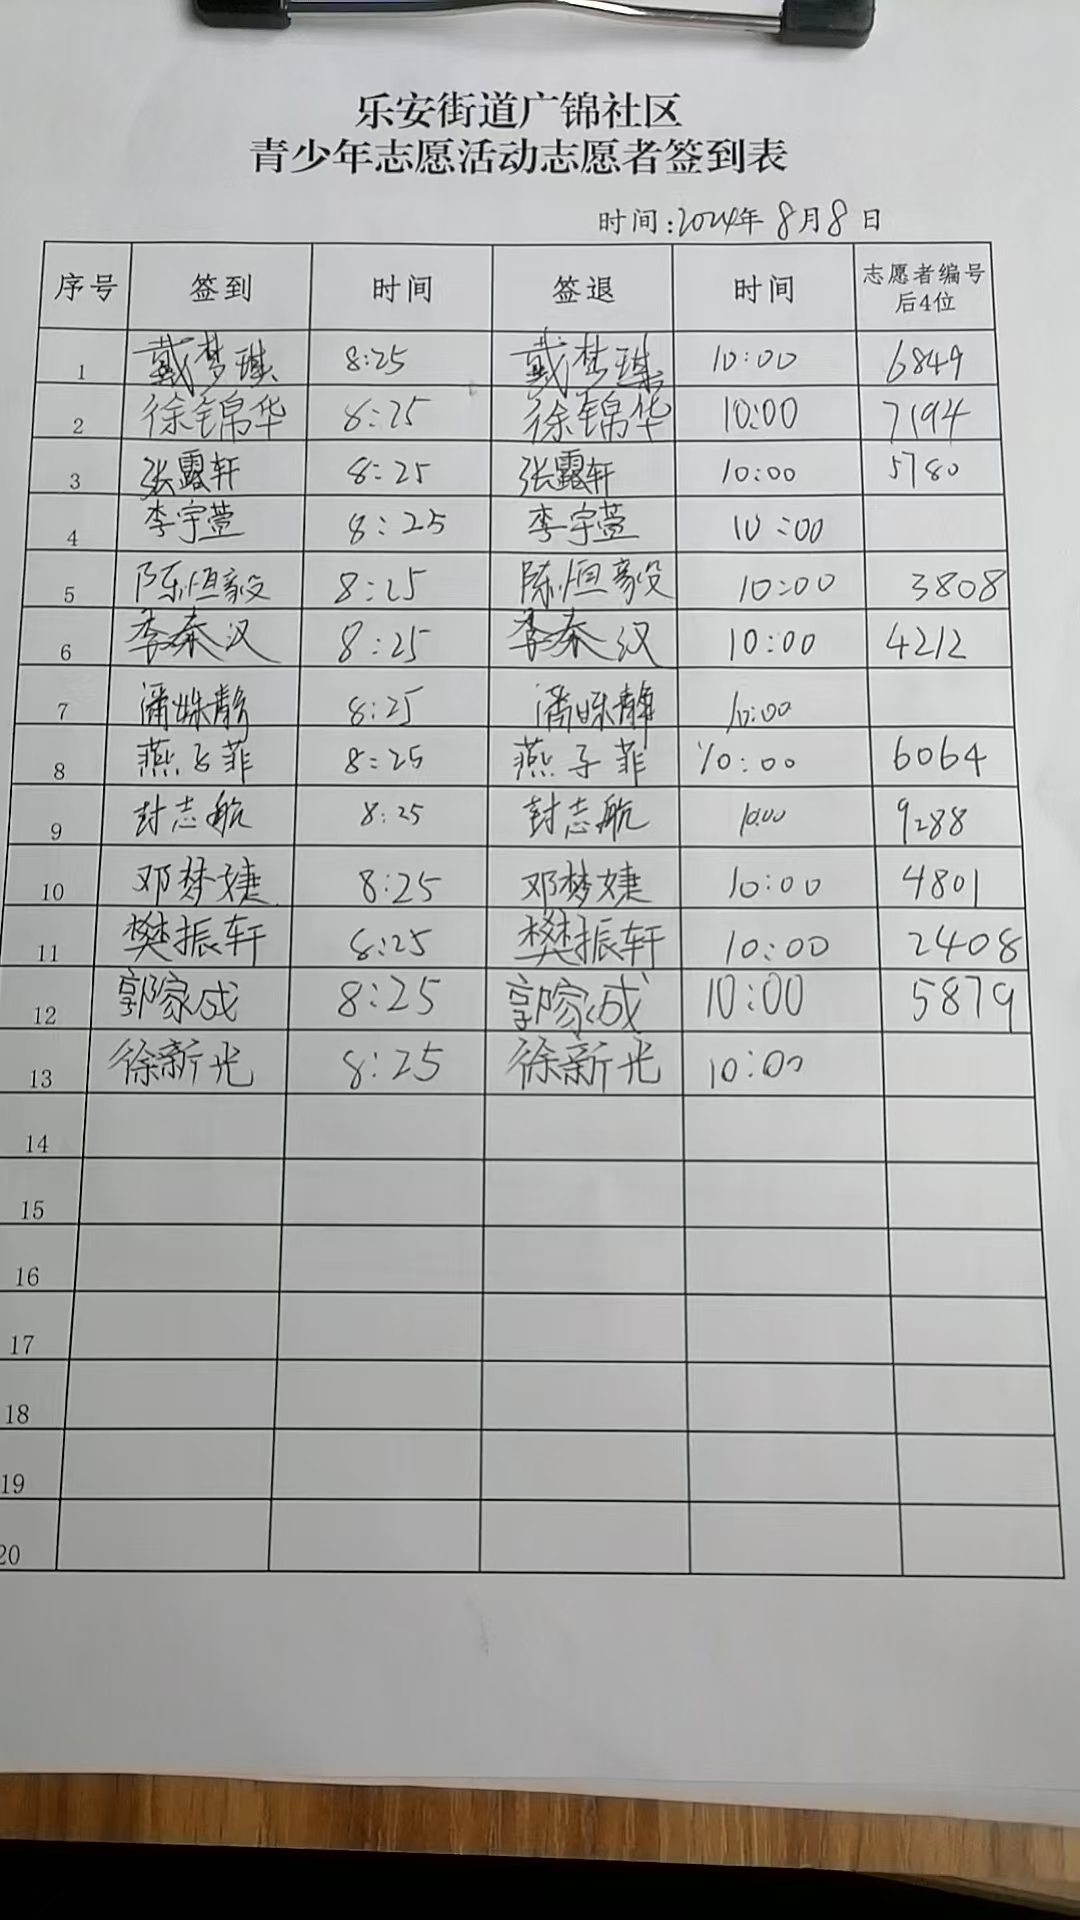 乐安街道广锦社区
青少年志愿活动志愿者签到表
时间:2024年8月8日
序号 签到 时间 签退 时间 志愿者编号后4位
1 戴梦琪 8:25 戴梦琪 10:00 6849
2 徐锦华 8:25 徐锦华 10:00 7194
3 张露轩 8:25 张露轩 10:00 5780
4 李宇萱 8:25 李宇萱 10:00
5 陈恒毅 8:25 陈恒毅 10:00 3808
6 李秦汉 8:25 李秦汉 10:00 4212
7 潘姝静 8:25 潘姝静 10:00
8 燕子菲 8:25 燕子菲 10:00 6064
9 封志航 8:25 封志航 10:00 9288
10 邓梦婕 8:25 邓梦婕 10:00 4801
11 樊振轩 8:25 樊振轩 10:00 2408
12 郭家成 8:25 郭家成 10:00 5879
13 徐新光 8:25 徐新光 10:00
14
15
16
17
18
19
20